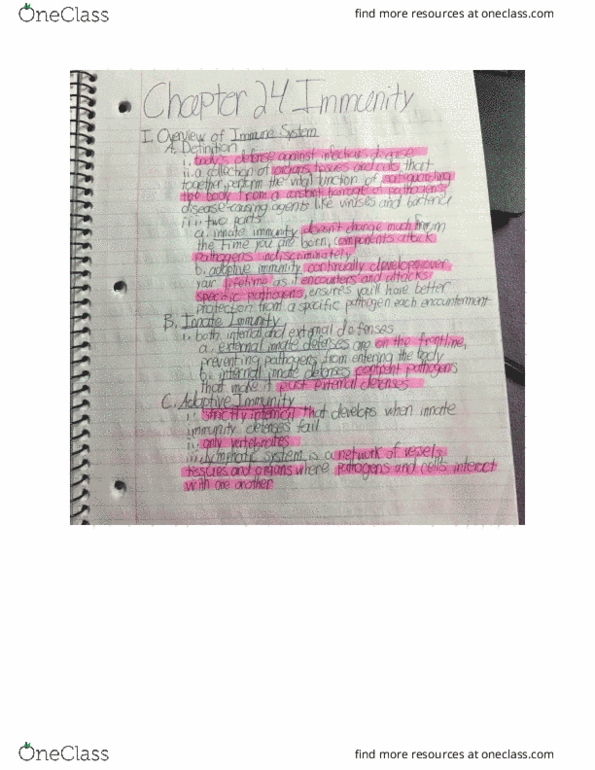 OneClass
find more resources at oneclass.com
Chapter 24 Immunity
I. Overview of Immune System
A. Definition
i. body's defense against infectious disease
ii. a collection of organs, tissues and cells that
together perform the vital function of safeguarding
the body from a constant barrage of pathogens,
disease-causing agents like viruses and bacteria
iii. two parts
a. innate immunity doesn't change much from
the time you are born, components attack
pathogens indiscriminately
b. adaptive immunity continually develops over
your lifetime as it encounters and attacks
specific pathogens, ensures you'll have better
protection from a specific pathogen each encounterment
B. Innate Immunity
i. both internal and external defenses
a. external innate defenses are on the frontline,
preventing pathogens from entering the body
b. internal innate defenses confront pathogens
that make it past external defenses
C. Adaptive Immunity
i. strictly internal that develops when innate
immunity defenses fail
ii. only vertebrates
iii. lymphatic system is a network of vessels,
tissues and organs where pathogens and cells interact
with one another
OneClass
find more resources at oneclass.com